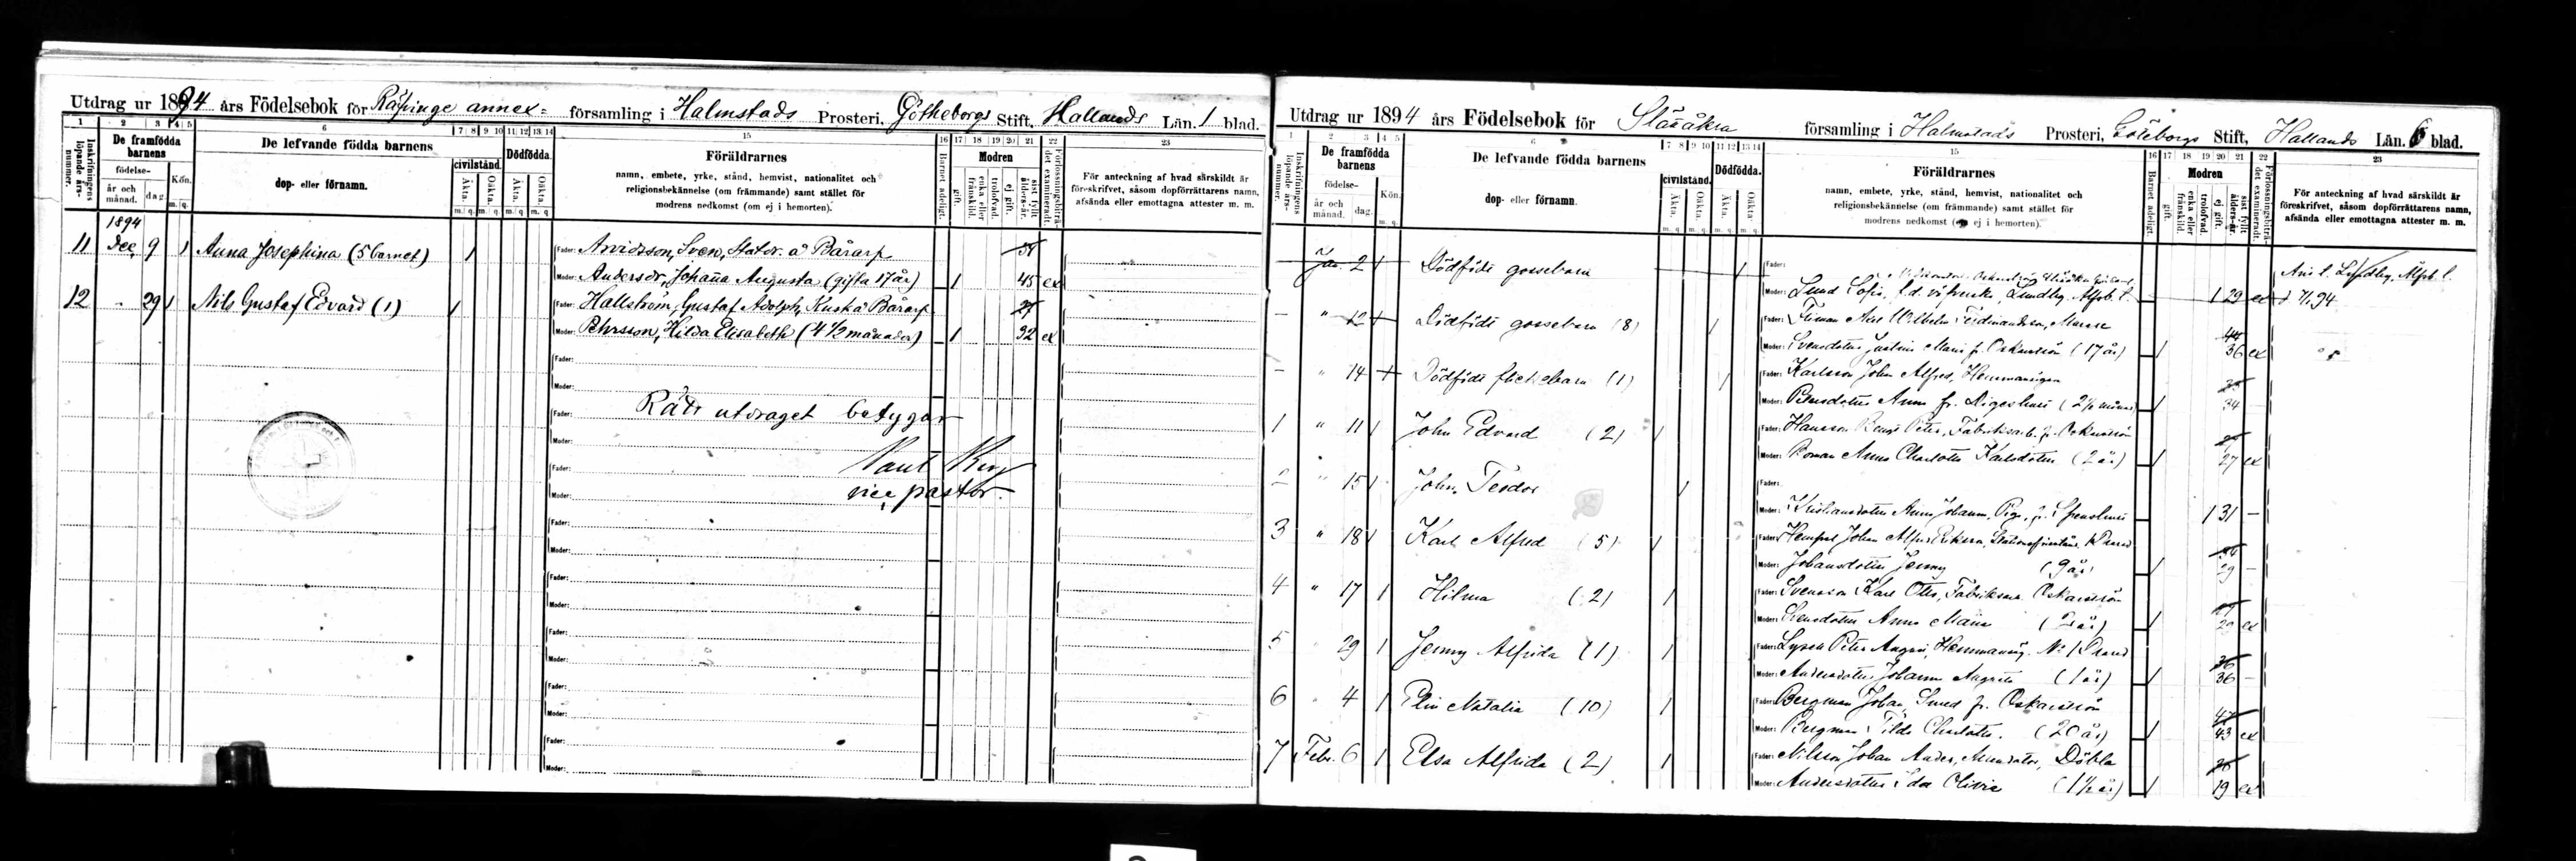 Utdrag ur 1894 års Födelsebok för Räpinge annex= församling i Halmstads Prosteri, Götheborgs Stift, Hallands Län. 1 blad.
1 2 3 4 5 6 7 8 9 10 11 12 13 14 15 16 17 18 19 20 21 22 23
Inskrifningens löpande års-nummer.
De framfödda barnens
födelse-
år och månad.
dag.
Kön.
m. q.
De lefvande födda barnens
dop- eller förnamn.
civilstånd.
Äkta. Oäkta.
m. q. m. q.
Dödfödda.
Äkta. Oäkta.
m. q. m. q.
Föräldrarnes
namn, embete, yrke, stånd, hemvist, nationalitet och
religionsbekännelse (om främmande) samt stället för
modrens nedkomst (om ej i hemorten).
Barnet adeligt.
Modren
gift.
enka eller frånskild.
trolofvad.
ej gift.
sist fyllt ålders-år.
Förlossningsbiträdet examineradt.
För anteckning af hvad särskildt är
föreskrifvet, såsom dopförrättarens namn,
afsända eller emottagna attester m. m.
1894
11 Dec. 9 1 Anna Josephina (5 barnet) 1 Fader: Arvidsson, Sven, Statdr. å Bårarp 51
Moder: Andersdr, Johanna Augusta (gifta 17 år) 1 45 ex
12 " 29 1 Nils Gustaf Edvard (1) 1 Fader: Hallström, Gustaf Adolph, Kusk å Bårarp 27
Moder: Pehrsson, Hilda Elisabeth (4 1/2 månader) 1 32 ex
Fader:
Moder:
Fader: Rätt utdraget betygar
Moder:
Fader:
Moder: vice pastor.
Fader:
Moder:
Fader:
Moder:
Fader:
Moder:
Fader:
Moder:
Fader:
Moder:
Utdrag ur 1894 års Födelsebok för Slättåkra församling i Halmstads Prosteri, Göteborgs Stift, Hallands Län. 6 blad.
1 2 3 4 5 6 7 8 9 10 11 12 13 14 15 16 17 18 19 20 21 22 23
Inskrifningens löpande års-nummer.
De framfödda barnens
födelse-
år och månad.
dag.
Kön.
m. q.
De lefvande födda barnens
dop- eller förnamn.
civilstånd.
Äkta. Oäkta.
m. q. m. q.
Dödfödda.
Äkta. Oäkta.
m. q. m. q.
Föräldrarnes
namn, embete, yrke, stånd, hemvist, nationalitet och
religionsbekännelse (om främmande) samt stället för
modrens nedkomst (om ej i hemorten).
Barnet adeligt.
Modren
gift.
enka eller frånskild.
trolofvad.
ej gift.
sist fyllt ålders-år.
Förlossningsbiträdet examineradt.
För anteckning af hvad särskildt är
föreskrifvet, såsom dopförrättarens namn,
afsända eller emottagna attester m. m.
Jan. 2 1 Dödfödt gossebarn 1 Fader:
Moder: Lund Sofia, f.d. Lundby, Älfsb. l. 1 29 ex
" 12 Dödfödt gossebarn (8) 1 Fader: Wilhelm Ferdinandsson, Murare 44
Moder: Svensdotter Justina Maria fr. Oskarström (17 år) 1 36 ex
" 14 Dödfödt flickebarn (1) 1 Fader: Karlsson John Alfred, Hemmansegare
Moder: Bengtsdotter Anna fr. (2 1/2 månad) 1 34
1 " 11 1 John Edvard (2) 1 Fader: Hansson Bengt Peter, Fabriksarb. fr. Oskarström
Moder: Roman Anna Charlotta Karlsdotter (2 år) 1 27 ex
2 " 15 1 John Teodor 1 Fader:
Moder: Kristiansdotter Anna Johanna, Piga, fr. 1 31
3 " 18 1 Karl Alfred (5) 1 Fader: Johan Alfred
Moder: Johansdotter Jenny (9 år) 1 29
4 " 17 1 Hilma (2) 1 Fader: Svensson Karl Otto, Fabriksarb. Oskarström
Moder: Svensdotter Anna Maria (2 år) 1 ex
5 " 29 1 Jenny Alfrida (1) 1 Fader: Peter August, Hemmanseg. No 1
Moder: Andersdotter Johanna (1 år) 1 36
6 " 4 1 Elin Natalia (10) 1 Fader: Bergman Johan, Smed fr. Oskarström 47
Moder: Bergman Tilda Charlotta. (20 år) 1 43 ex
7 Febr. 6 1 Elsa Alfrida (2) 1 Fader: Nilsson Johan Anders, Döbla
Moder: Andersdotter Ida Olivia (1 1/2 år) 1 19 ex